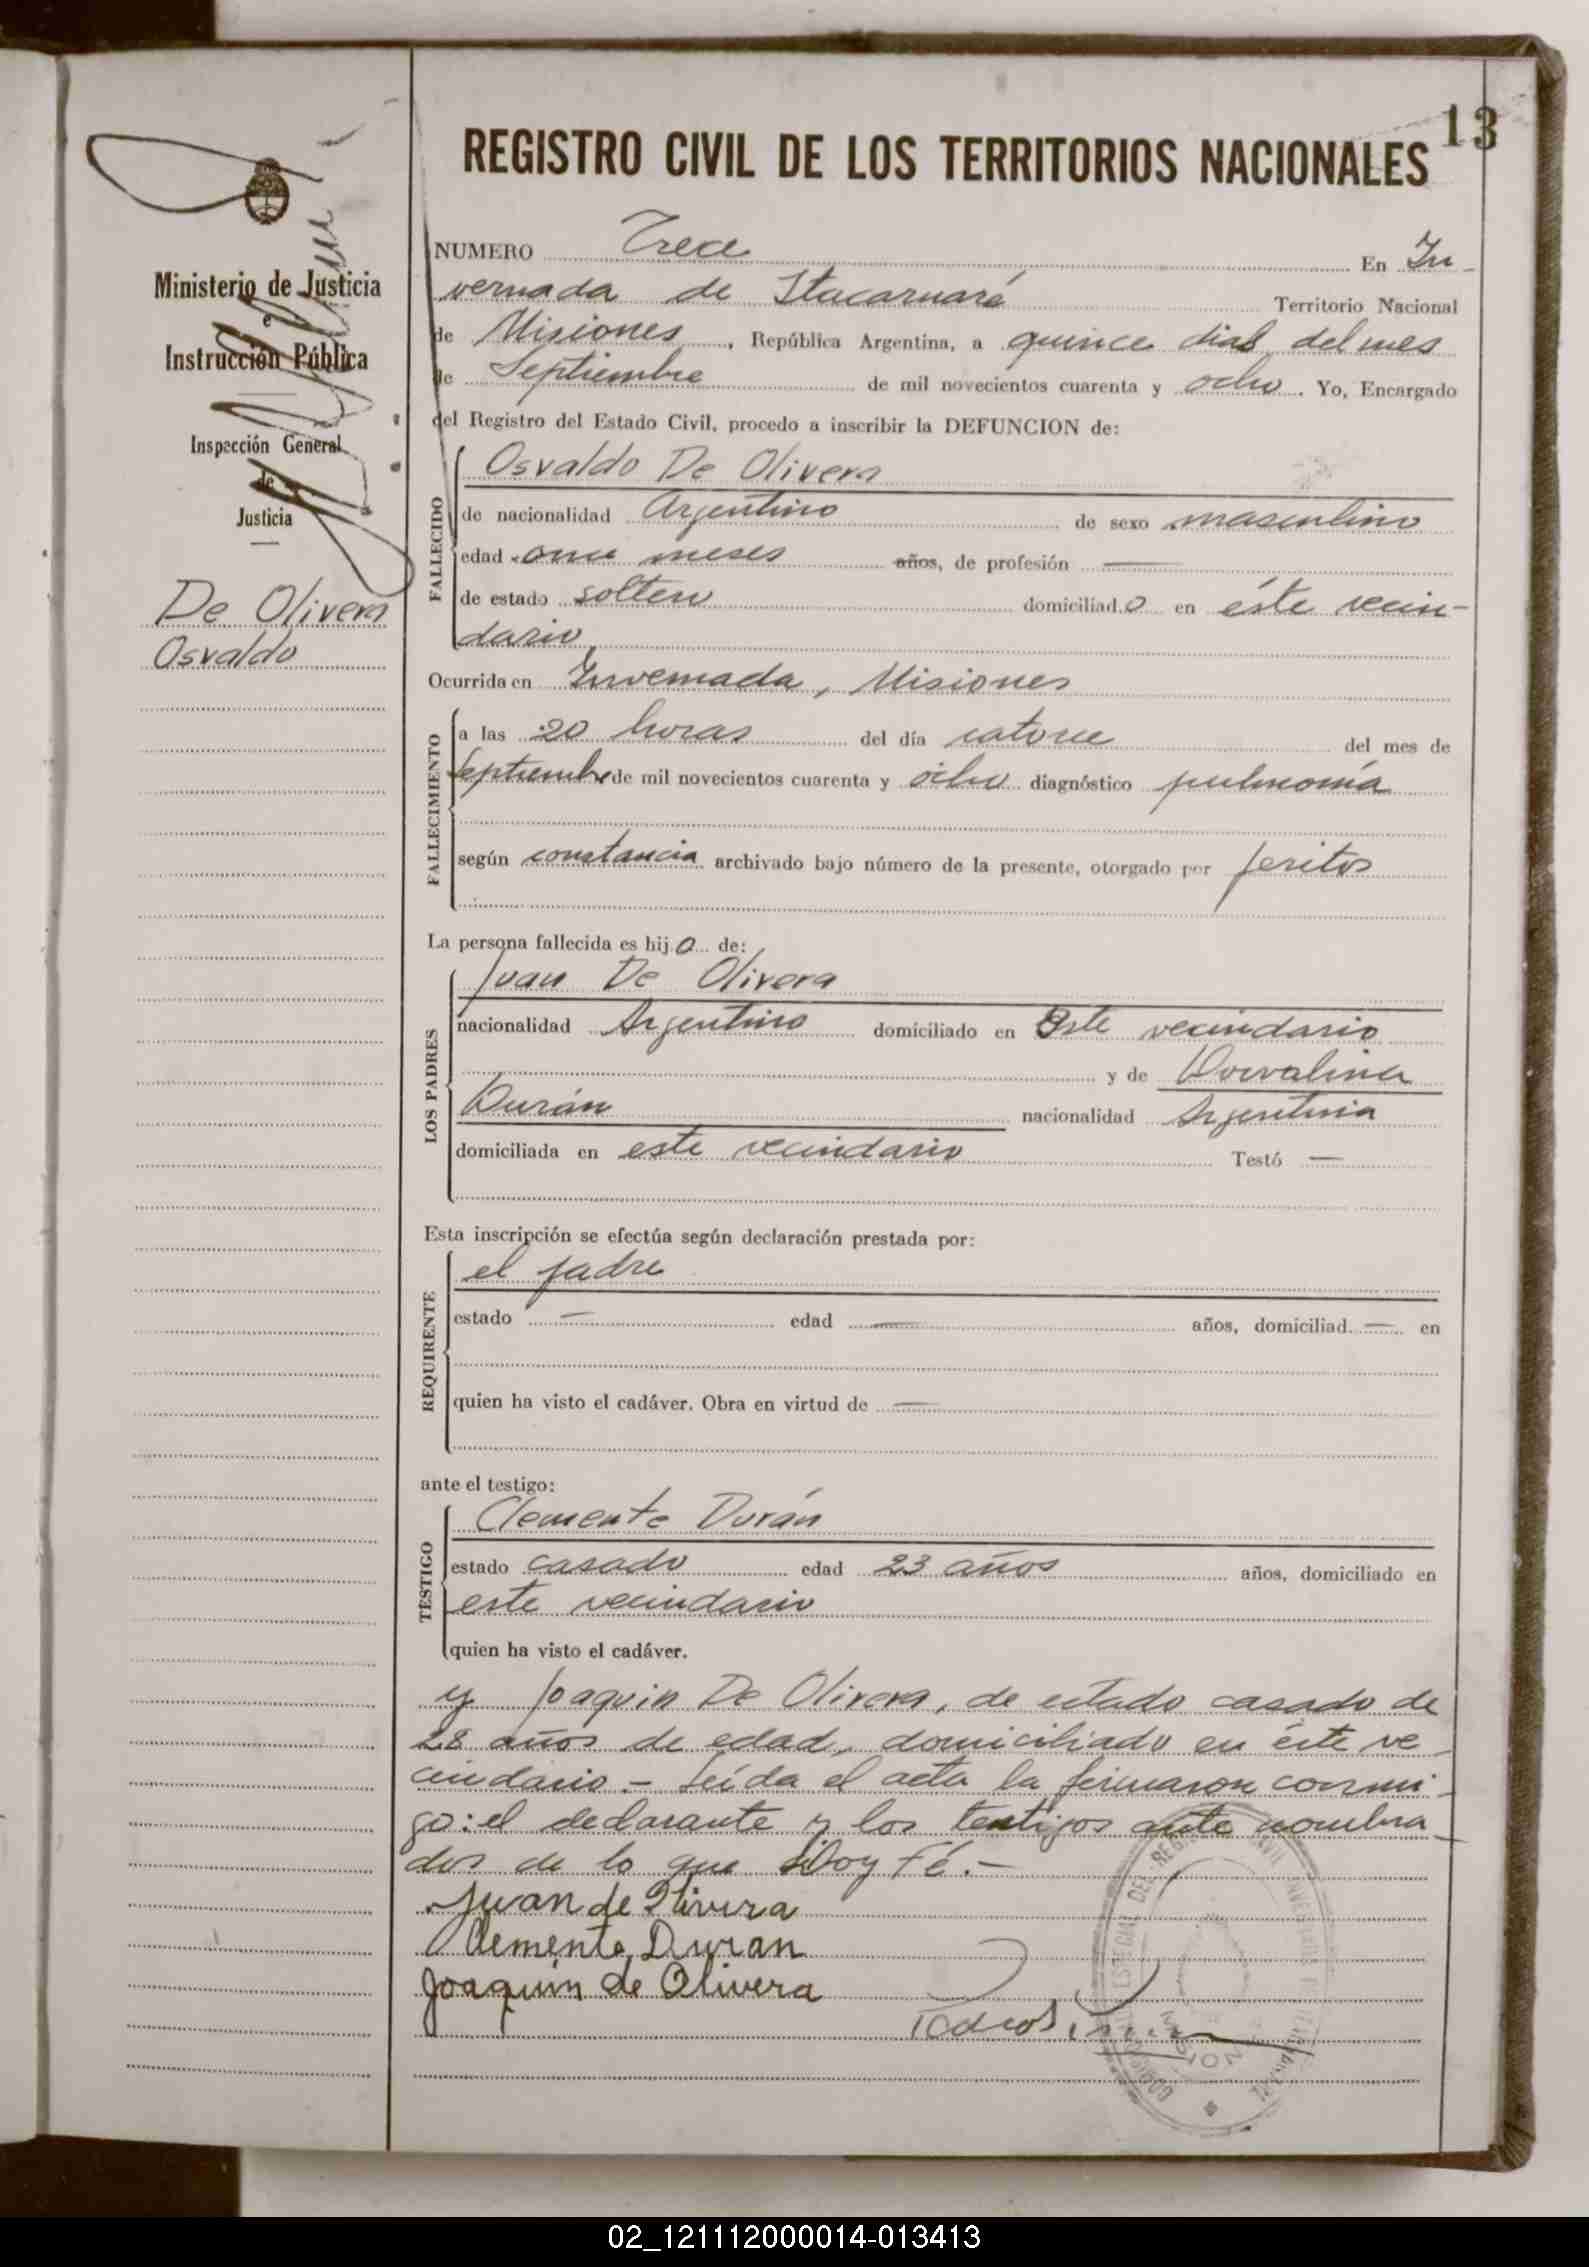 13
REGISTRO CIVIL DE LOS TERRITORIOS NACIONALES
Ministerio de Justicia
e
Instrucción Pública
Inspección General
de
Justicia
De Olivera
Osvaldo
NUMERO Trece En In-
vernada de Itacaruaré Territorio Nacional
de Misiones, República Argentina, a quince dias del mes
de Septiembre de mil novecientos cuarenta y ocho. Yo, Encargado
del Registro del Estado Civil, procedo a inscribir la DEFUNCION de:
FALLECIDO
Osvaldo De Olivera
de nacionalidad Argentino de sexo masculino
edad once meses años, de profesión —
de estado soltero domiciliado en éste vecin-
dario
Ocurrida en Invernada, Misiones
FALLECIMIENTO
a las 20 horas del día catorce del mes de
Septiembre de mil novecientos cuarenta y ocho diagnóstico pulmonía
según constancia archivado bajo número de la presente, otorgado por peritos
La persona fallecida es hijo de:
LOS PADRES
Juan De Olivera
nacionalidad Argentino domiciliado en Este vecindario
y de Dorvalina
Durán nacionalidad Argentina
domiciliada en este vecindario Testó —
Esta inscripción se efectúa según declaración prestada por:
REQUIRENTE
el padre
estado — edad — años, domiciliad — en
quien ha visto el cadáver. Obra en virtud de —
ante el testigo:
TESTIGO
Clemente Durán
estado casado edad 23 años años, domiciliado en
este vecindario
quien ha visto el cadáver.
y Joaquin De Olivera, de estado casado de
28 años de edad, domiciliado en éste ve-
cindario.- Leída el acta la firmaron conmi-
go: el declarante y los testigos ante nombra-
dos de lo que Doy Fé.-
Juan de Olivera
Clemente Duran
Joaquín de Olivera
02_121112000014-013413